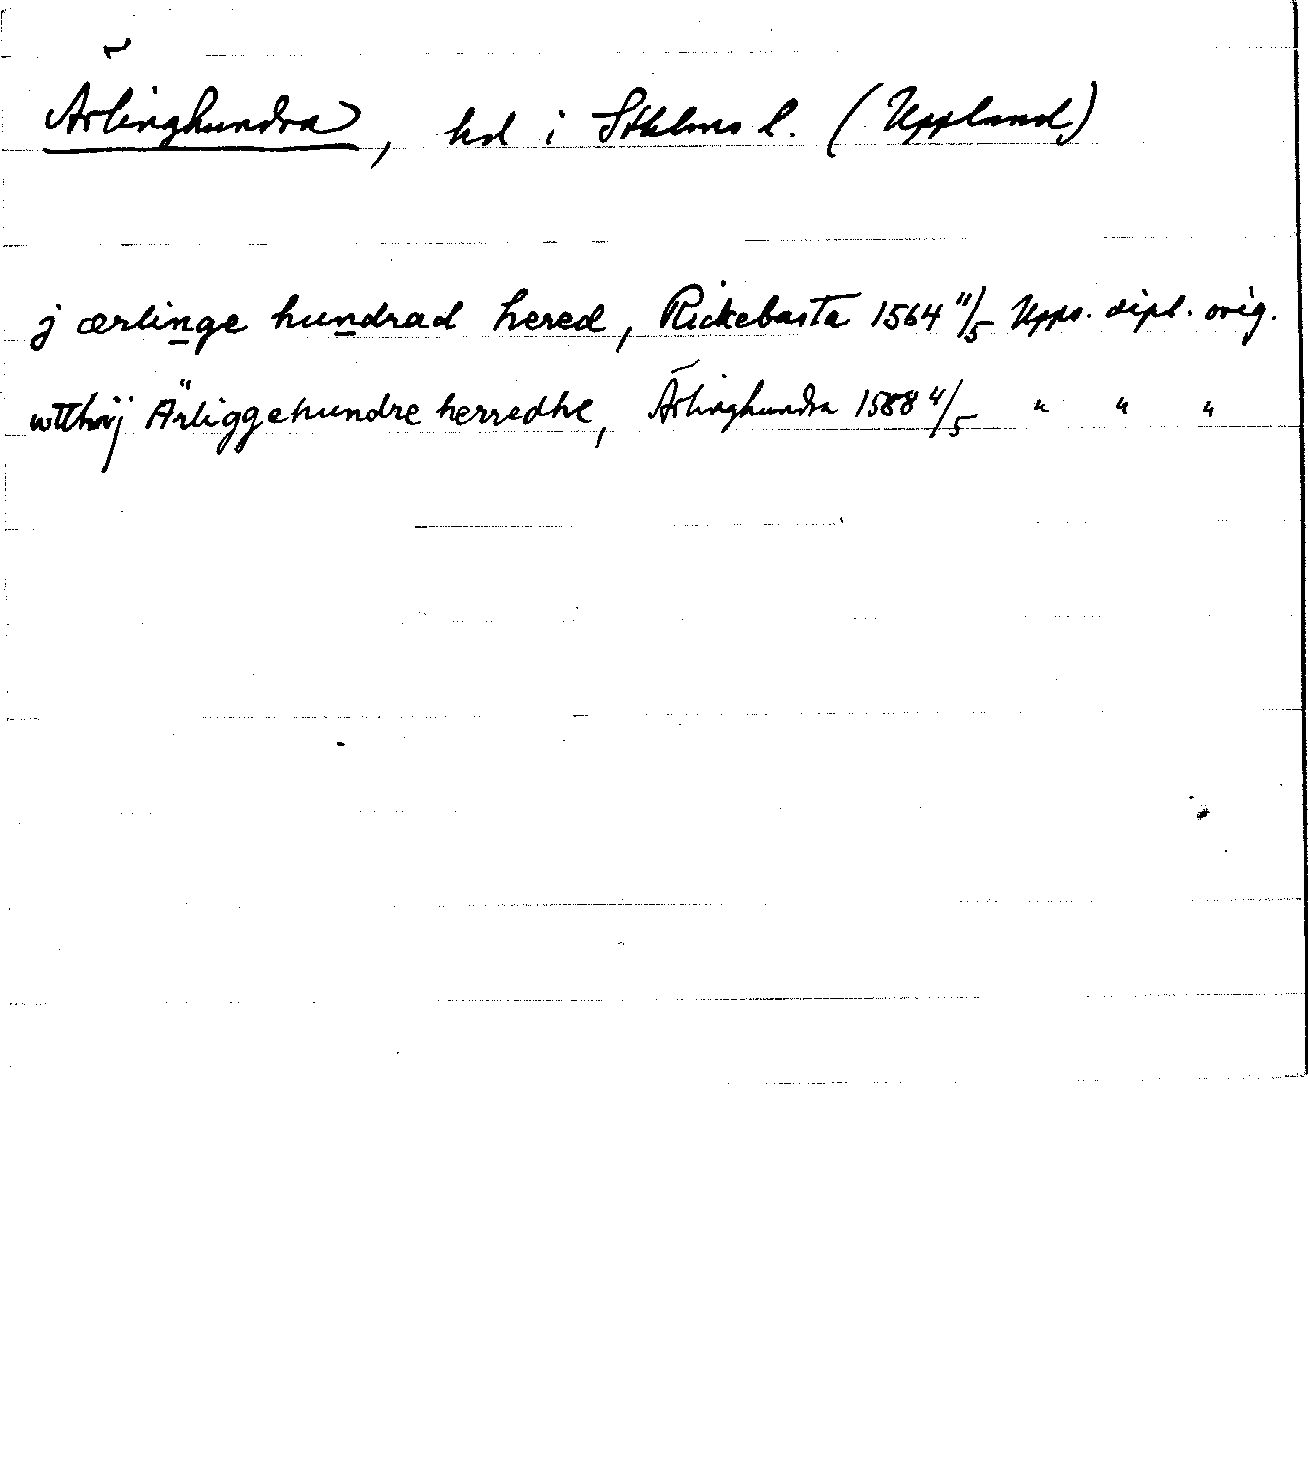 Ärlinghundra, hd i Sthlms l. (Uppland)
j ærlinge hundrad hered, Rickebasta 1564 11/5 Upps. dipl. orig.
wtthöj Ärliggehundre herredhe, Ärlinghundra 1588 4/5 " " "